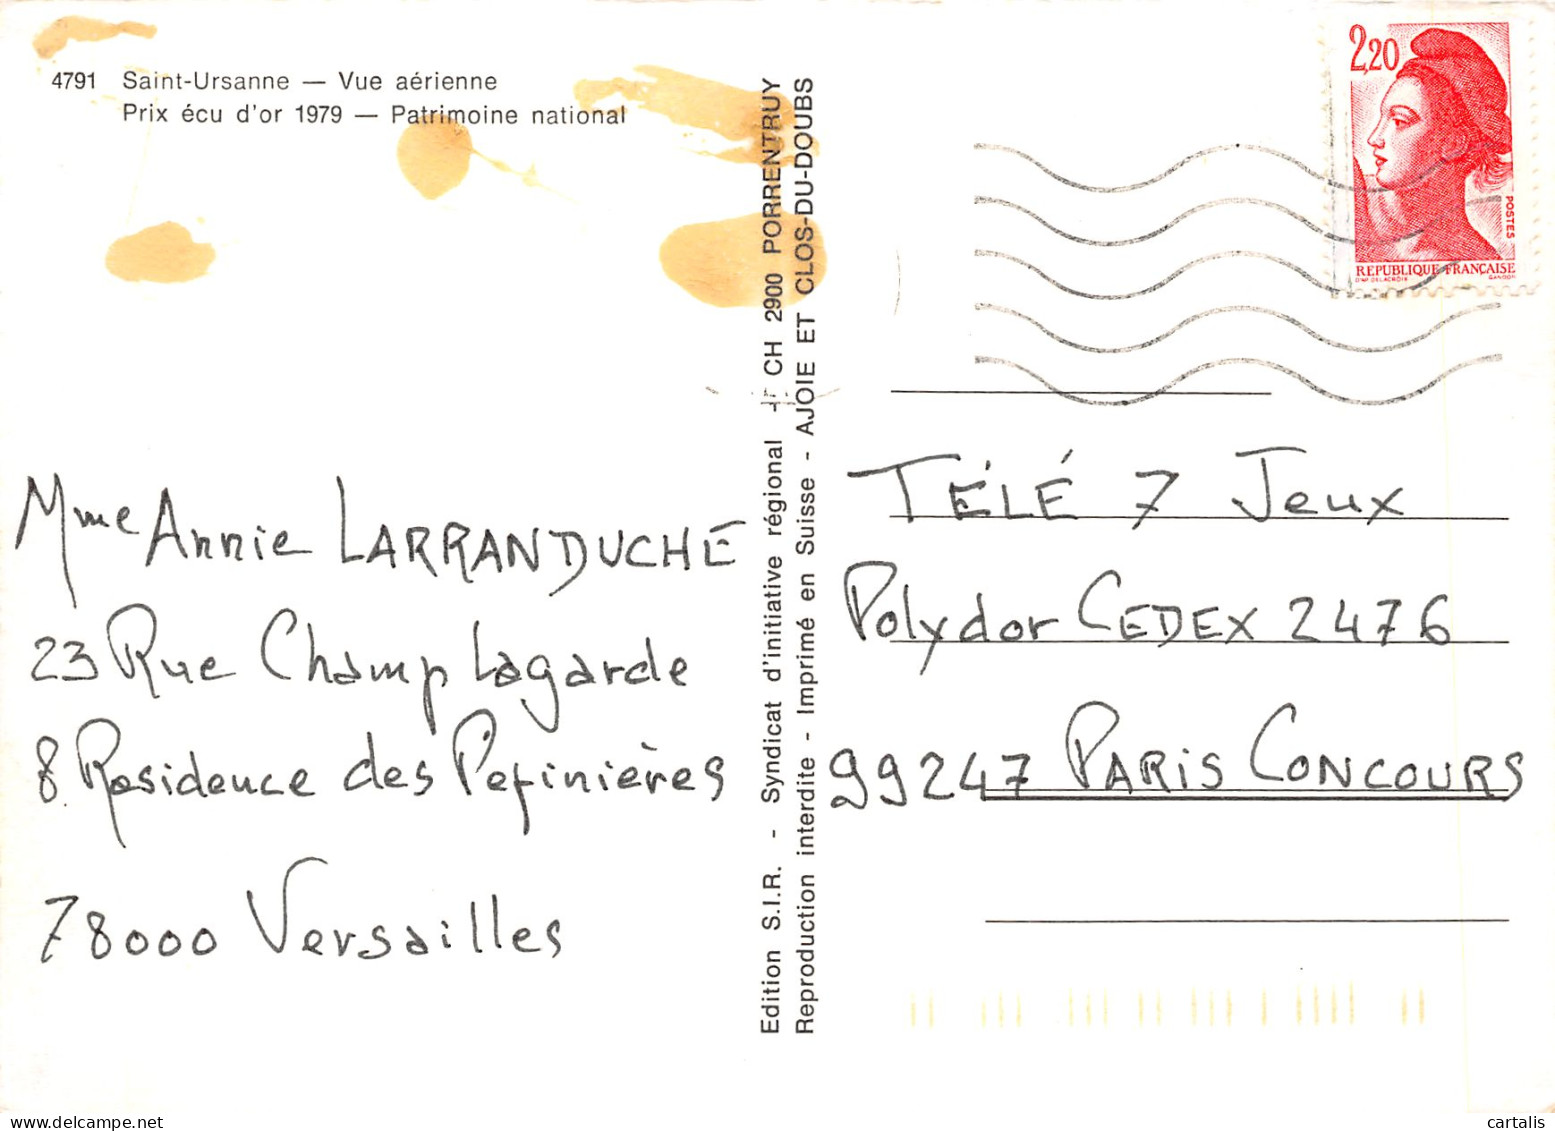 4791 Saint-Ursanne — Vue aérienne
Prix écu d'or 1979 — Patrimoine national
Mme Annie LARRANDUCHE
23 Rue Champ Lagarde
8 Residence des Pepinières
78000 Versailles
Edition S.I.R. - Syndicat d'initiative régional - CH 2900 PORRENTRUY
Reproduction interdite - Imprimé en Suisse - AJOIE ET CLOS-DU-DOUBS
2,20
POSTES
REPUBLIQUE FRANÇAISE
D'AP. DELACROIX GANDON
TÉLÉ 7 Jeux
Polydor CEDEX 2476
99247 PARIS CONCOURS
cartalis